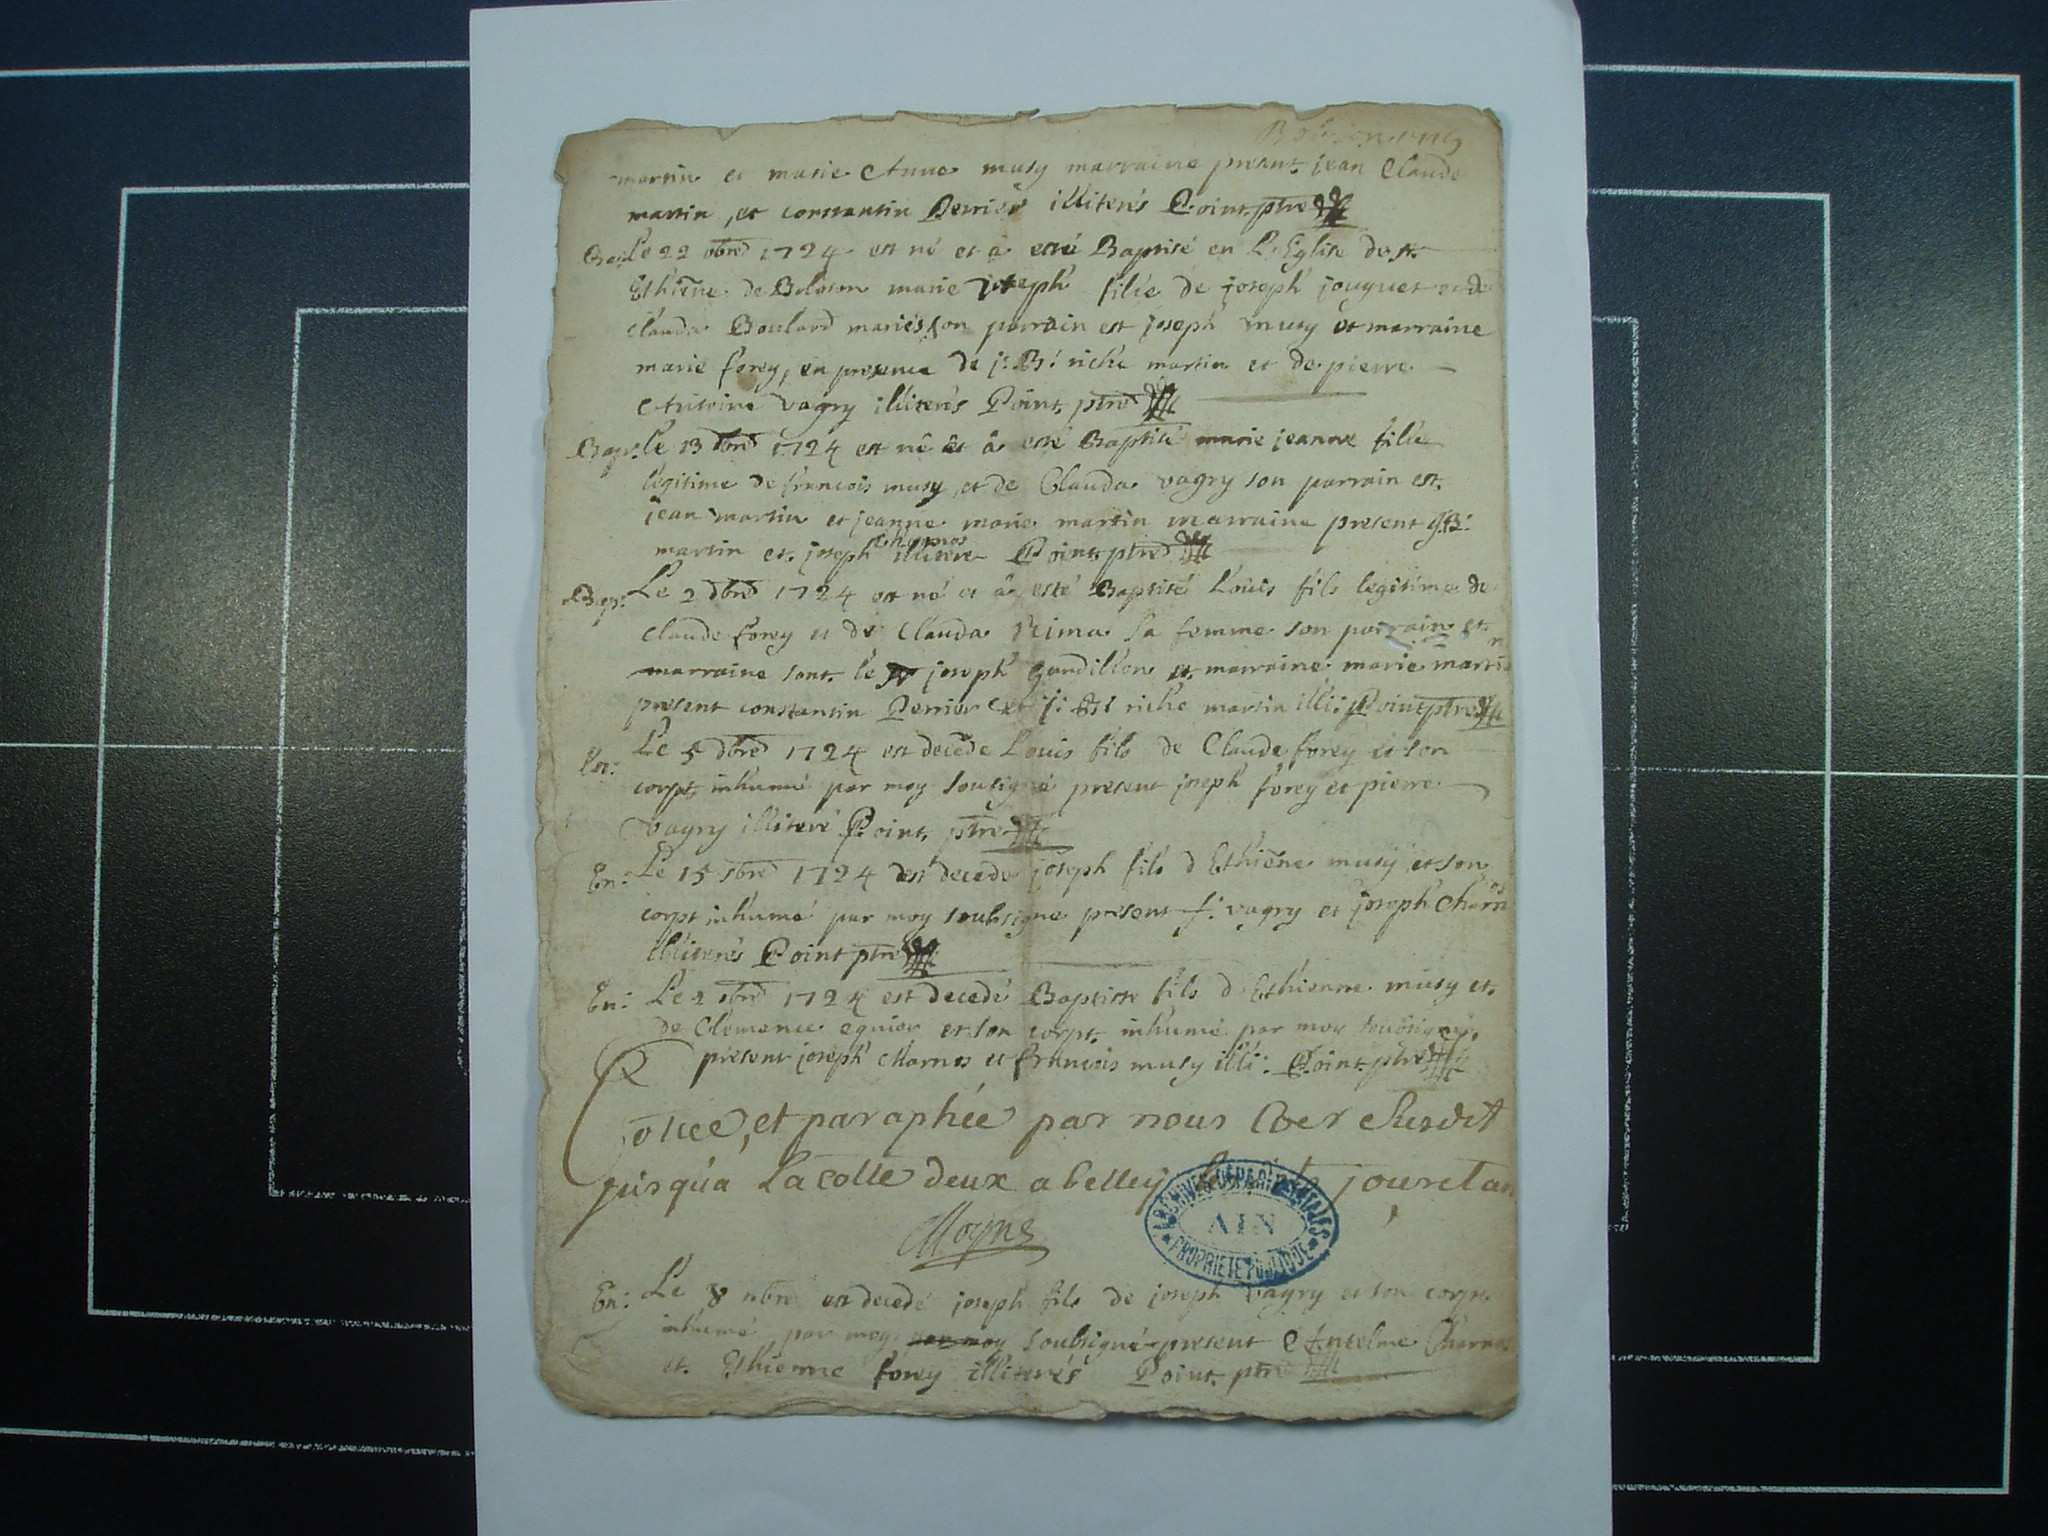 martin et marie Anne musy marraine presnt. jean Claude
martin, et constantin Perrier illiterés Point. ptre
Bap: Le 22 obre 1724 est né et à esté Baptisé en L'Eglise de st.
Esthiene de Boloson marie joseph fille de joseph jouguet et de
Clauda Boulard mariés son parrain est joseph musy et marraine
marie forey, en presence de j: B: riche martin et de pierre
Antoine vagry illiterés Point. ptre
Bap: Le 13 9bre 1724 est né et à esté Baptisé marie jeanne fille
legitime de francois musy, et de Clauda vagry son parrain est.
jean martin et jeanne marie martin marraine present j B:
martin et. joseph Charnos illiteré Point. ptre
Bap: Le 2 dbre 1724 est né et à esté Baptisé Louis fils legitime de
Claude forey et de Clauda Nima sa femme son parrain et
marraine sont. le joseph gandillon et. marraine marie martin
present constantin Perrier et j: B: riche martin illi: Point ptre
En: Le 5 dbre 1724 est decede Louis fils de Claude forey et son
corpt. inhumé par moy sousigné present joseph forey et pierre
vagry illiteré Point. ptre
En: Le 15 1724 est decede joseph fils d Esthiene musy et son
corpt inhumé par moy soubsigné present f: vagry et joseph Charnos
illiterés Point ptre
En: Le 2 1724 est decedé Baptiste fils d Esthienne musy et.
de Clemence eguier et son corpt. inhumé par moy soubsigné,
present joseph Charnos et francois musy illi: Point. ptre
Cottée, et paraphée par nous Cser Susdit
jusqu'a La cotte deux a belley jour et an
Moyne
ARCHIVES DÉPARTEMENTALES
AIN
PROPRIETE PUBLIQUE
En: Le 8 nbre est decedé joseph fils de joseph vagry et son corps
inhumé par moy par moy soubsigné present Antelme Charnos
et. Esthienne forey illiterés Point. ptre